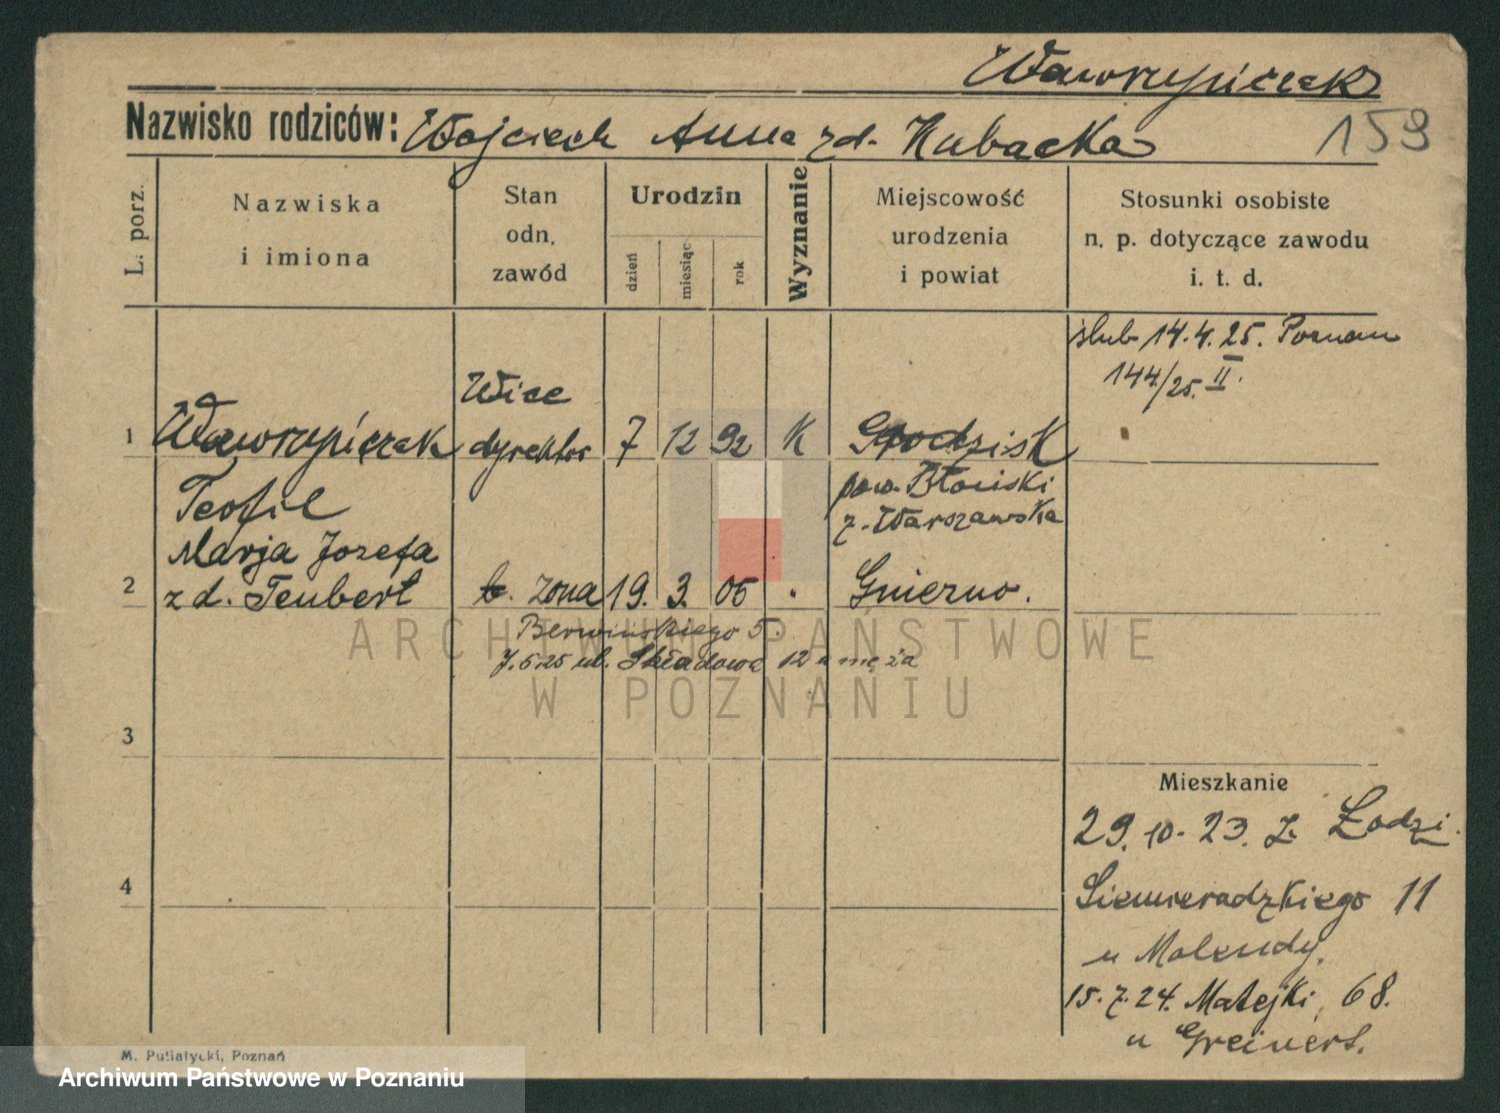 Wawrzyńczak
Nazwisko rodziców: Wojciech Anna zd. Kubacka
159
L. porz.
Nazwiska
i imiona
Stan
odn.
zawód
Urodzin
dzień
miesiąc
rok
Wyznanie
Miejscowość
urodzenia
i powiat
Stosunki osobiste
n. p. dotyczące zawodu
i. t. d.
ślub 14.4.25. Poznań
144/25. II.
Wice
1 Wawrzyńczak dyrektor 7 12 92 K Grodzisk
Teofil pow. Błoński
z. Warszawska
Marja Józefa
2 zd. Teubert ż. żona 19. 3. 05 " Gniezno.
Berwińskiego 5.
7.5.25 ul. Składowa 12 u męża
3
Mieszkanie
29.10.23. z Łodzi.
4
Siemieradzkiego 11
u Molendy.
15.7.24. Matejki, 68.
u Greinert.
M. Putiatycki, Poznań
ARCHIWUM PAŃSTWOWE
W POZNANIU
Archiwum Państwowe w Poznaniu